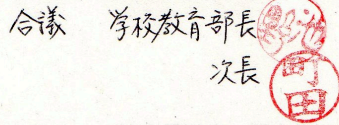 合議 学校教育部長
次長
町田